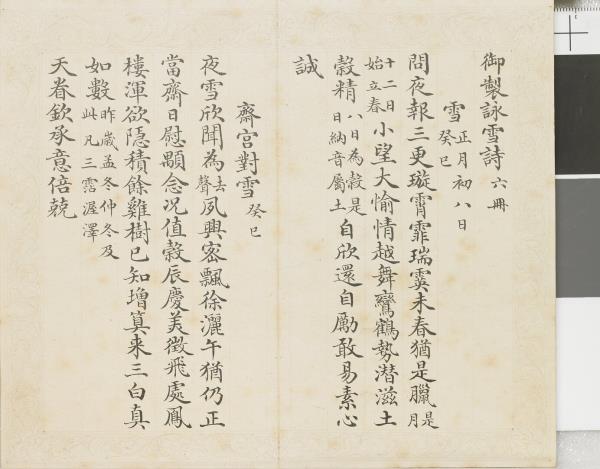 御製詠雪詩 六冊
雪 正月初八日癸巳
問夜報三更璇霄霏瑞霙未春猶是臘是月
十二日始立春小望大愉情越舞鸞鶴勢潛滋土
穀精八日為穀是日納音屬土自欣還自勵敢易素心
誠
齋宮對雪 癸巳
夜雪欣聞為去聲夙興密飄徐灑午猶仍正
當齋日慰顒念况值穀辰慶美徵飛處鳳
樓渾欲隱積餘雞樹已知增筭来三白真
如數昨歲孟冬仲冬及此凡三霑渥澤
天眷欽承意倍兢